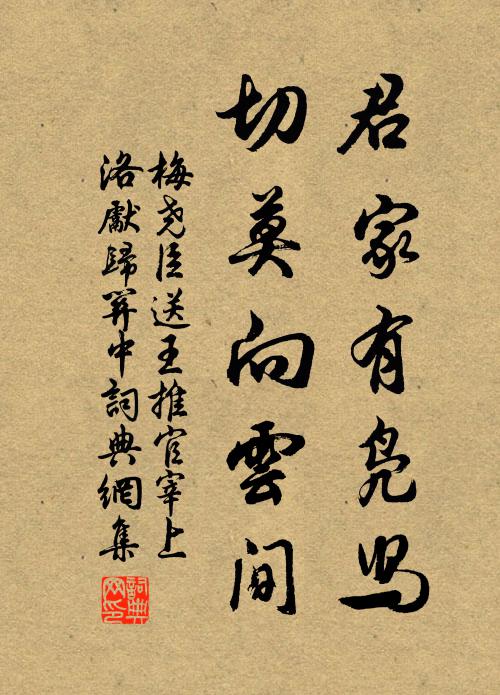 君家有鳧舄
切莫向雲間
梅尧臣送王推官宰上
洛獻歸關中詞典網集
詞典网印